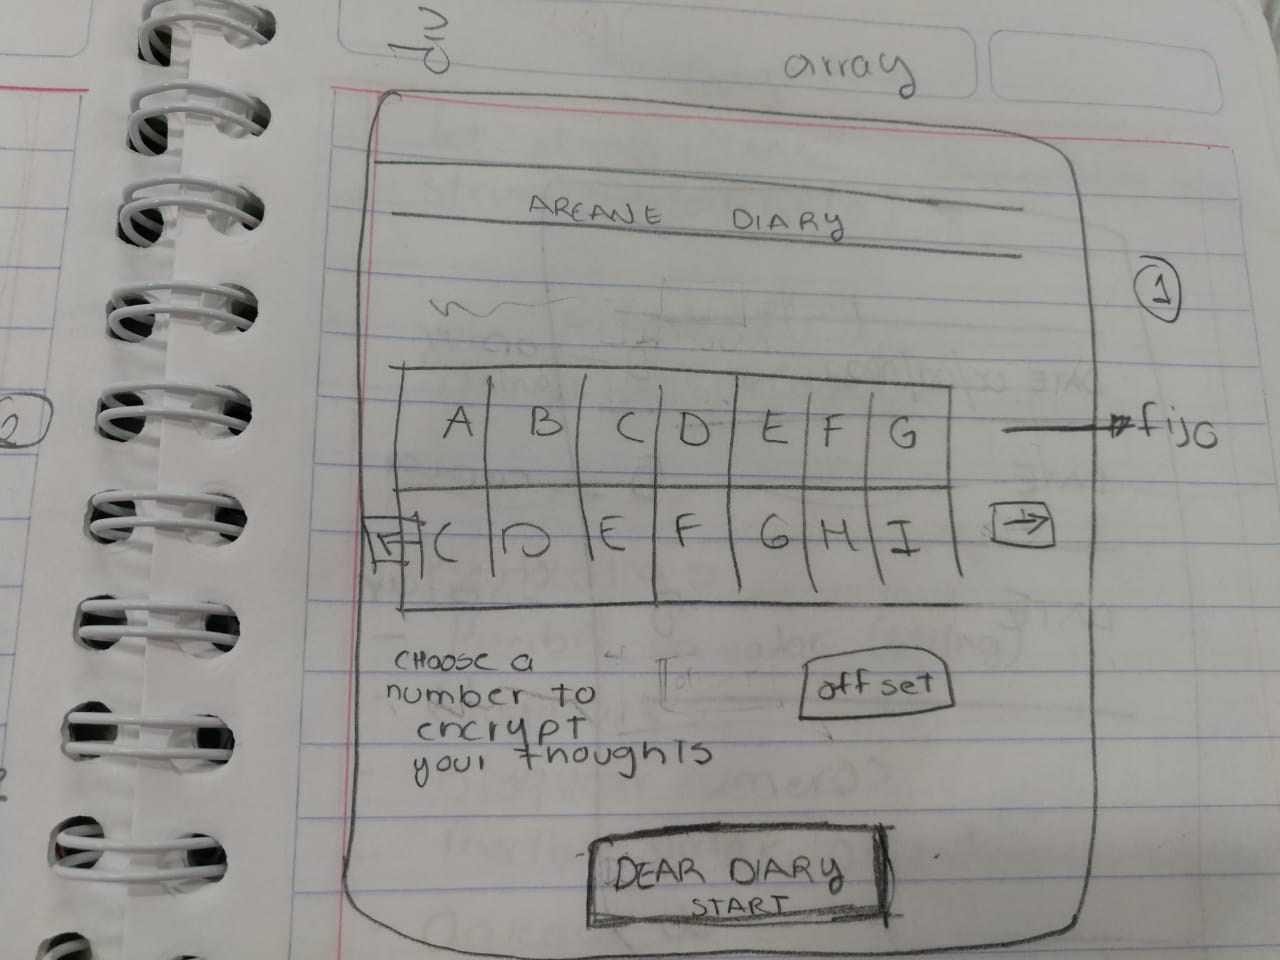 div
array
ARCANE DIARY
1
A B C D E F G
fijo
← C D E F G H I →
CHOOSE a
number to
encrypt
your thoughts
offset
DEAR DIARY
START